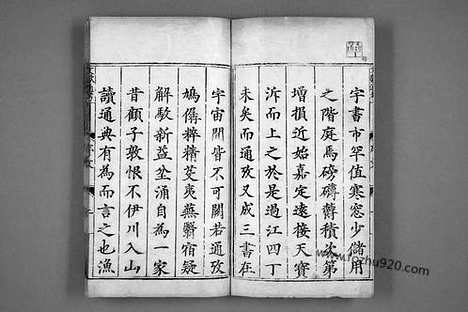 字書市罕值寒窓少儲用
之階庭焉磅礴蕢積次第
增損近始嘉定遠接天寳
泝而上之於是過江四丁
未矣而通攷又成三書在
宇宙間皆不可闕若通攷
鳩僝粹精芟夷蕪翳宿疑
解駁新益坌涌自為一家
昔顧子敦恨不伊川入山
讀通典有為而言之也漁
www.fozhu920.com